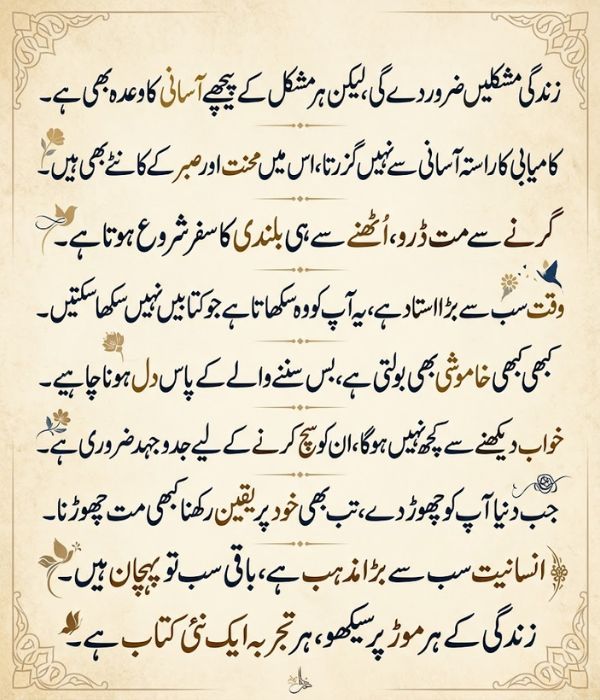 زندگی مشکلیں ضرور دے گی، لیکن ہر مشکل کے پیچھے آسانی کا وعدہ بھی ہے۔
کامیابی کا راستہ آسانی سے نہیں گزرتا، اس میں محنت اور صبر کے کانٹے بھی ہیں۔
گرنے سے مت ڈرو، اُٹھنے سے ہی بلندی کا سفر شروع ہوتا ہے۔
وقت سب سے بڑا استاد ہے، یہ آپ کو وہ سکھاتا ہے جو کتابیں نہیں سکھا سکتیں۔
کبھی کبھی خاموشی بھی بولتی ہے، بس سننے والے کے پاس دل ہونا چاہیے۔
خواب دیکھنے سے کچھ نہیں ہوگا، ان کو سچ کرنے کے لیے جدوجہد ضروری ہے۔
جب دنیا آپ کو چھوڑ دے، تب بھی خود پر یقین رکھنا کبھی مت چھوڑنا۔
انسانیت سب سے بڑا مذہب ہے، باقی سب تو پہچان ہیں۔
زندگی کے ہر موڑ پر سیکھو، ہر تجربہ ایک نئی کتاب ہے۔